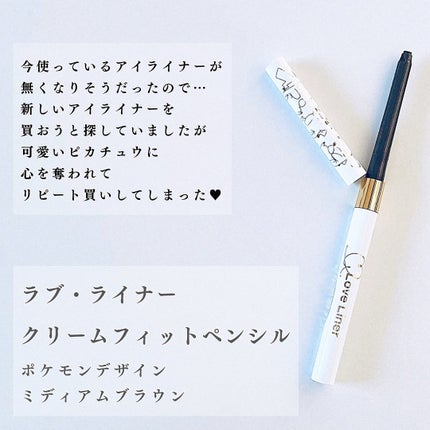 今使っているアイライナーが
無くなりそうだったので…
新しいアイライナーを
買おうと探していましたが
可愛いピカチュウに
心を奪われて
リピート買いしてしまった♥
ラブ・ライナー
クリームフィットペンシル
ポケモンデザイン
ミディアムブラウン
Love Liner